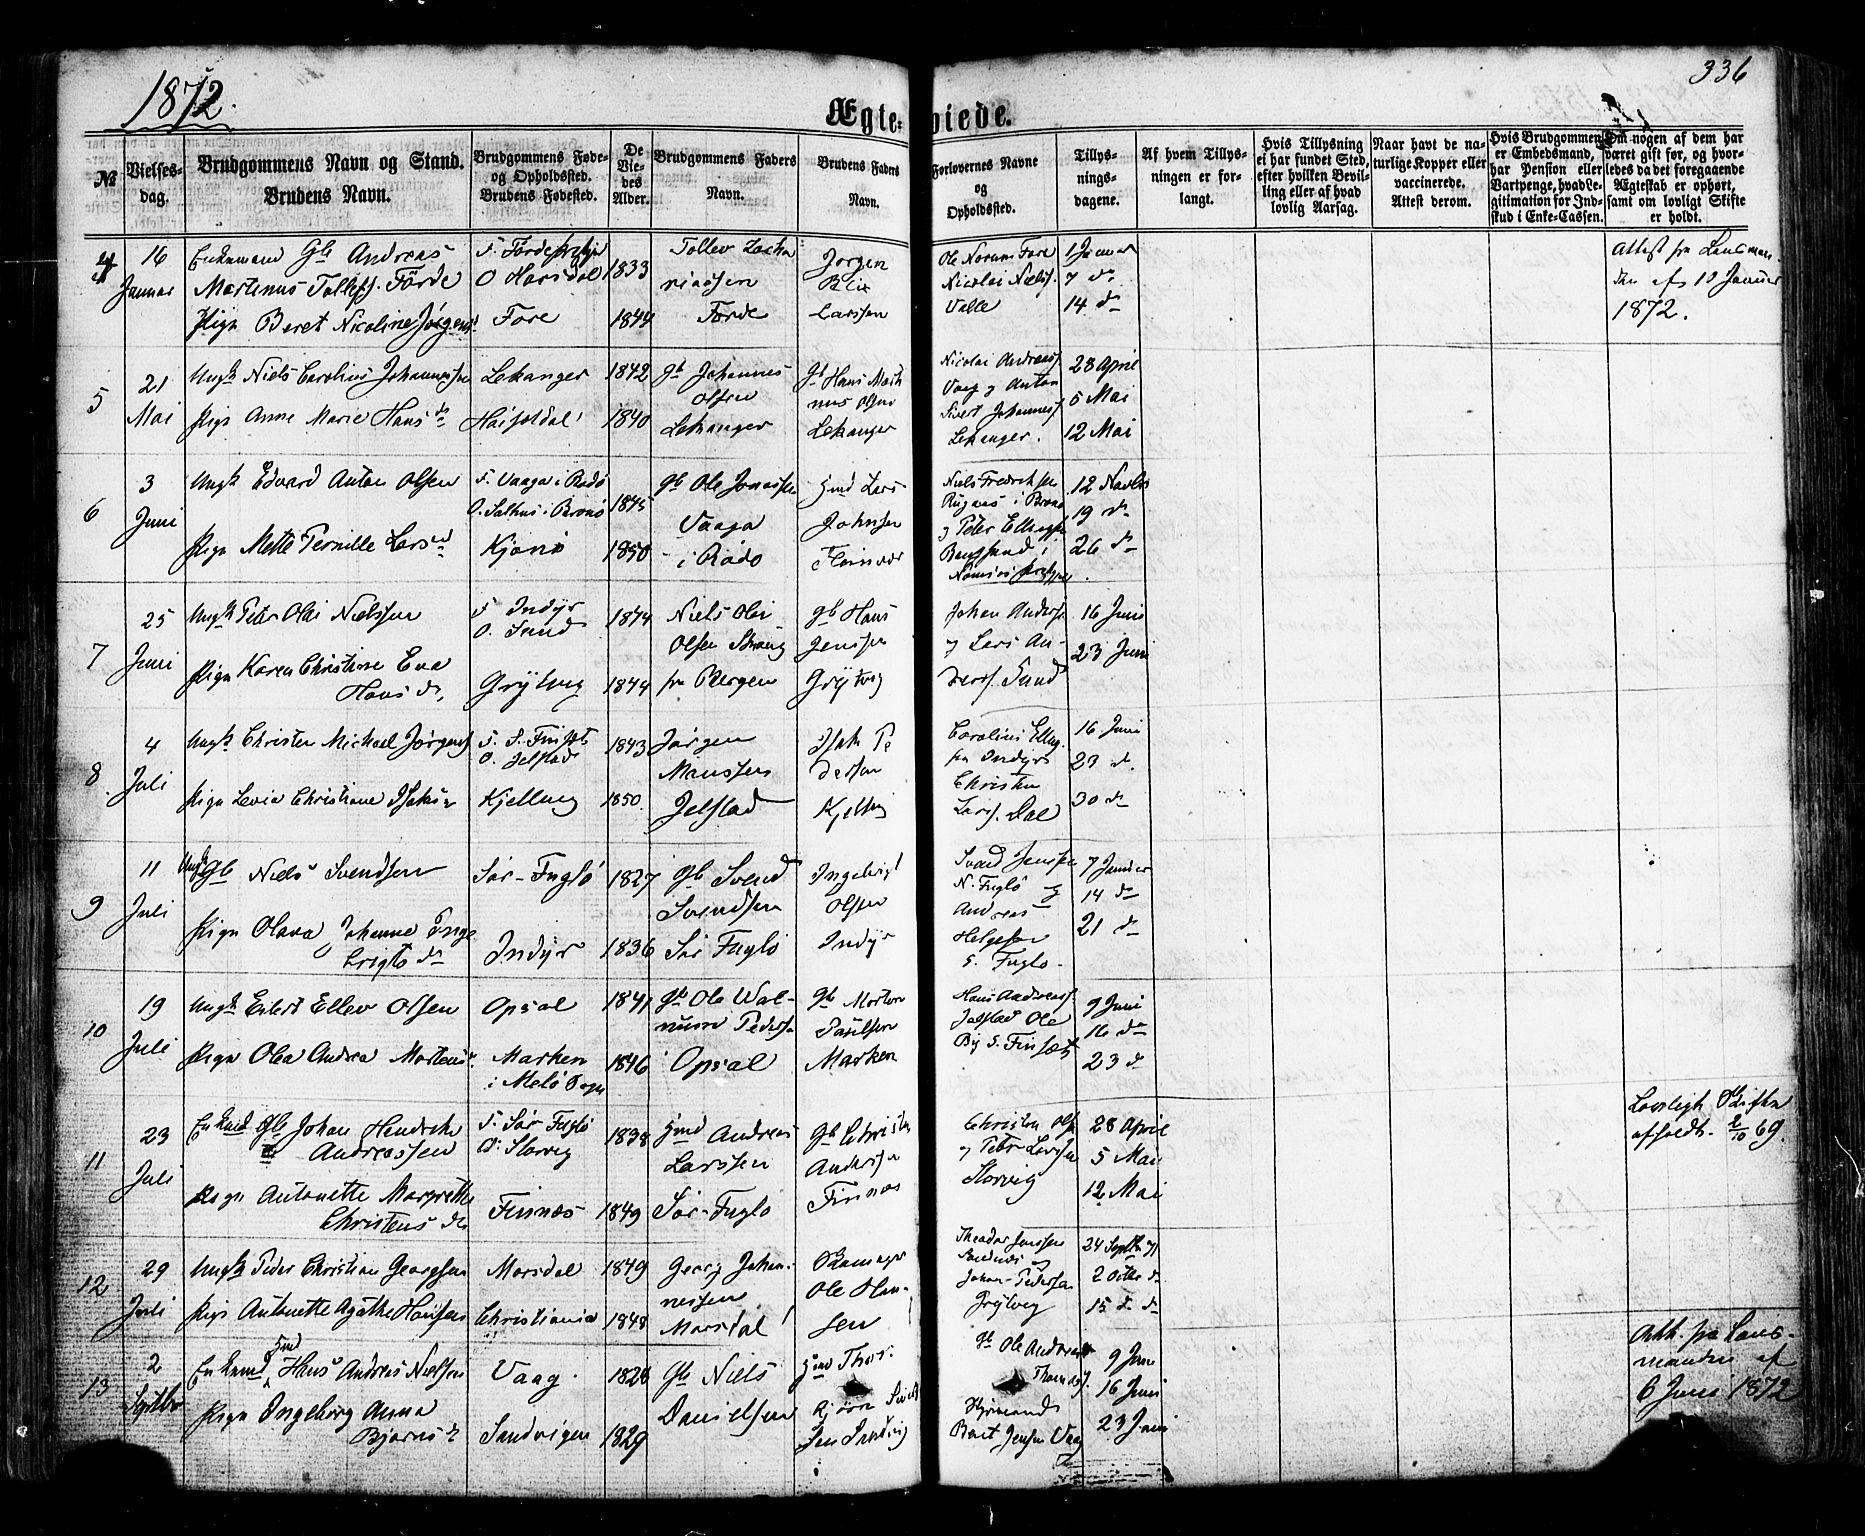 1872.
336
Ægteviede.
№
Vielses-
dag.
Brudgommens Navn og Stand.
Brudens Navn.
Brudgommens Føde-
og Opholdssted.
Brudens Fødested.
De
Vie-
des
Alder.
Brudgommens Faders
Navn.
Brudens Faders
Navn.
Forlovernes Navne
og
Opholdssted.
Tillys-
nings-
dagene.
Af hvem Tillys-
ningen er for-
langt.
Hvis Tillysning
ei har fundet Sted,
efter hvilken Bevil-
ling eller af hvad
lovlig Aarsag.
Naar havt de na-
turlige Kopper eller
vaccinerede.
Attest derom.
Hvis Brudgommen
er Embedsmand,
har Pension eller
Vartpenge, hvad Le-
gitimation for Ind-
skud i Enke-Cassen.
Om nogen af dem har
været gift før, og hvor-
ledes da det foregaaende
Ægteskab er ophørt,
samt om lovligt Skifte
er holdt.
4
16
Januar
Enkemand Gb Andreas
Martinus Førde
Pign Beret Nicoline
O Horsdal
Fore
1833
1844
Tollev Zacha
riassen
Førde
Jørgen
Blix
Larssen
Ole Fore
Nicolai Niels.
Valle
1 Januar
7 do
14 do
Attest fra Lensman
den af 10 Januar
1872.
5
21
Mai
Ungk Niels Carolius Johannessen
Pign Anne Marie Hans dr
Lekanger
1842
1840
Gb Johannes
Olsen
Lekanger
Gb Hans Mart
nus Olsen
Lekanger
Nicolai Andreas
Vaag og Anton
Sivert Johannes
Lekanger.
28 April
5 Mai
12 Mai
6
3
Juni
Ungk Edvard Anton Olsen
Pign Mette Pernille Lars dr
F. Vaaga i Rødø
Kjønø
1845
1850
Gb Ole Jonassen
Vaaga
i Rødø
Lars
Johnsen
Niels Fredriksen
og Peter
12
19 do
26 do
7
25
Juni
Ungk Peter Olai Nielssen
Pign Karen Christine Eva
Hans dr.
F. Indyr
O. Sund
Grytvig
1844
1844
Niels Olai
Olsen
fra Bergen
Gb Hans
Jenssen
Grytvig
Johan Anders
og Lars An-
ders. Sund
16 Juni
23 Juni
8
4
Juli
Ungk Christen Michael Jørgens
Pign Levia Christiane
O. Jelstad
Kjelling
1843
1850.
Jørgen
Monssen
Jelstad
Isak Pe
dersen
Kjelling
Carolius
fra Indyr
Christen
Lars. Dal
16 Juni
23 do.
30 do
9
11
Juli
Ungk Gb Niels Svendsen
Pign Olava Johanne Inge
brigts dr
Sør-Fuglø
Indyr
1827
1836
Gb Svend
Svendsen
Sør Fuglø
Ingebrigt
Olsen
Indyr
Svend Jenssen
N. Fuglø og
Andreas
Helgesen
S. Fuglø.
7 Januar
14 do
21 do
10
19
Juli
Ungk Eilert Ellev Olsen
Pign Olea Andrea Mortens
Opsal
Marken
i Melø Sogn
1841
1846
Gb Ole Wal-
num Peders.
Opsal
Gb Morten
Poulsen
Marken
Hans Andreas
Jelstad Ole
By S. Finset
9 Juni
16 do
23 do
11
23
Juli
Enkmd Gb Johan Hendrik
Andreassen
Pign Antonette Margrethe
Christens dr
F. Sør Fuglø
O: Storvig
Finnæs
1838
1849
Andreas
Larssen
Sør-Fuglø
Gb Christen
Andersen
Finnæs
Christen Ols
og Peter Larsen
Storvig
28 April
5 Mai
12 Mai
Lovligt Skifte
afholdt 2/10 69.
12
29
Juli
Ungk Peder Christian Georgsen
Pign Antonette Agathe Hansen
Morsdal
Christiania
1849
1848
Georg Johan-
nessen
Morsdal
Skomager
Ole Han-
sen
Theodor Jenssen
Johan Pedersen
Grytvig
24 Septbr 71
2 Octbr do
15 do do
13
2
Septbr
Enkemd Hans Andreas Nielsen
Pign Ingeborg Anna
Bjørns dr
Vaag.
Sandvigen
1828
1829
Gb Niels
Danielsen
Thor-
bjørn
Gb Ole Andreas
Thomas.
Beret Jensen Vaag
9 Juni
16 Juni
23 Juni
Att. fra Lens-
manden af
6 Juni 1872